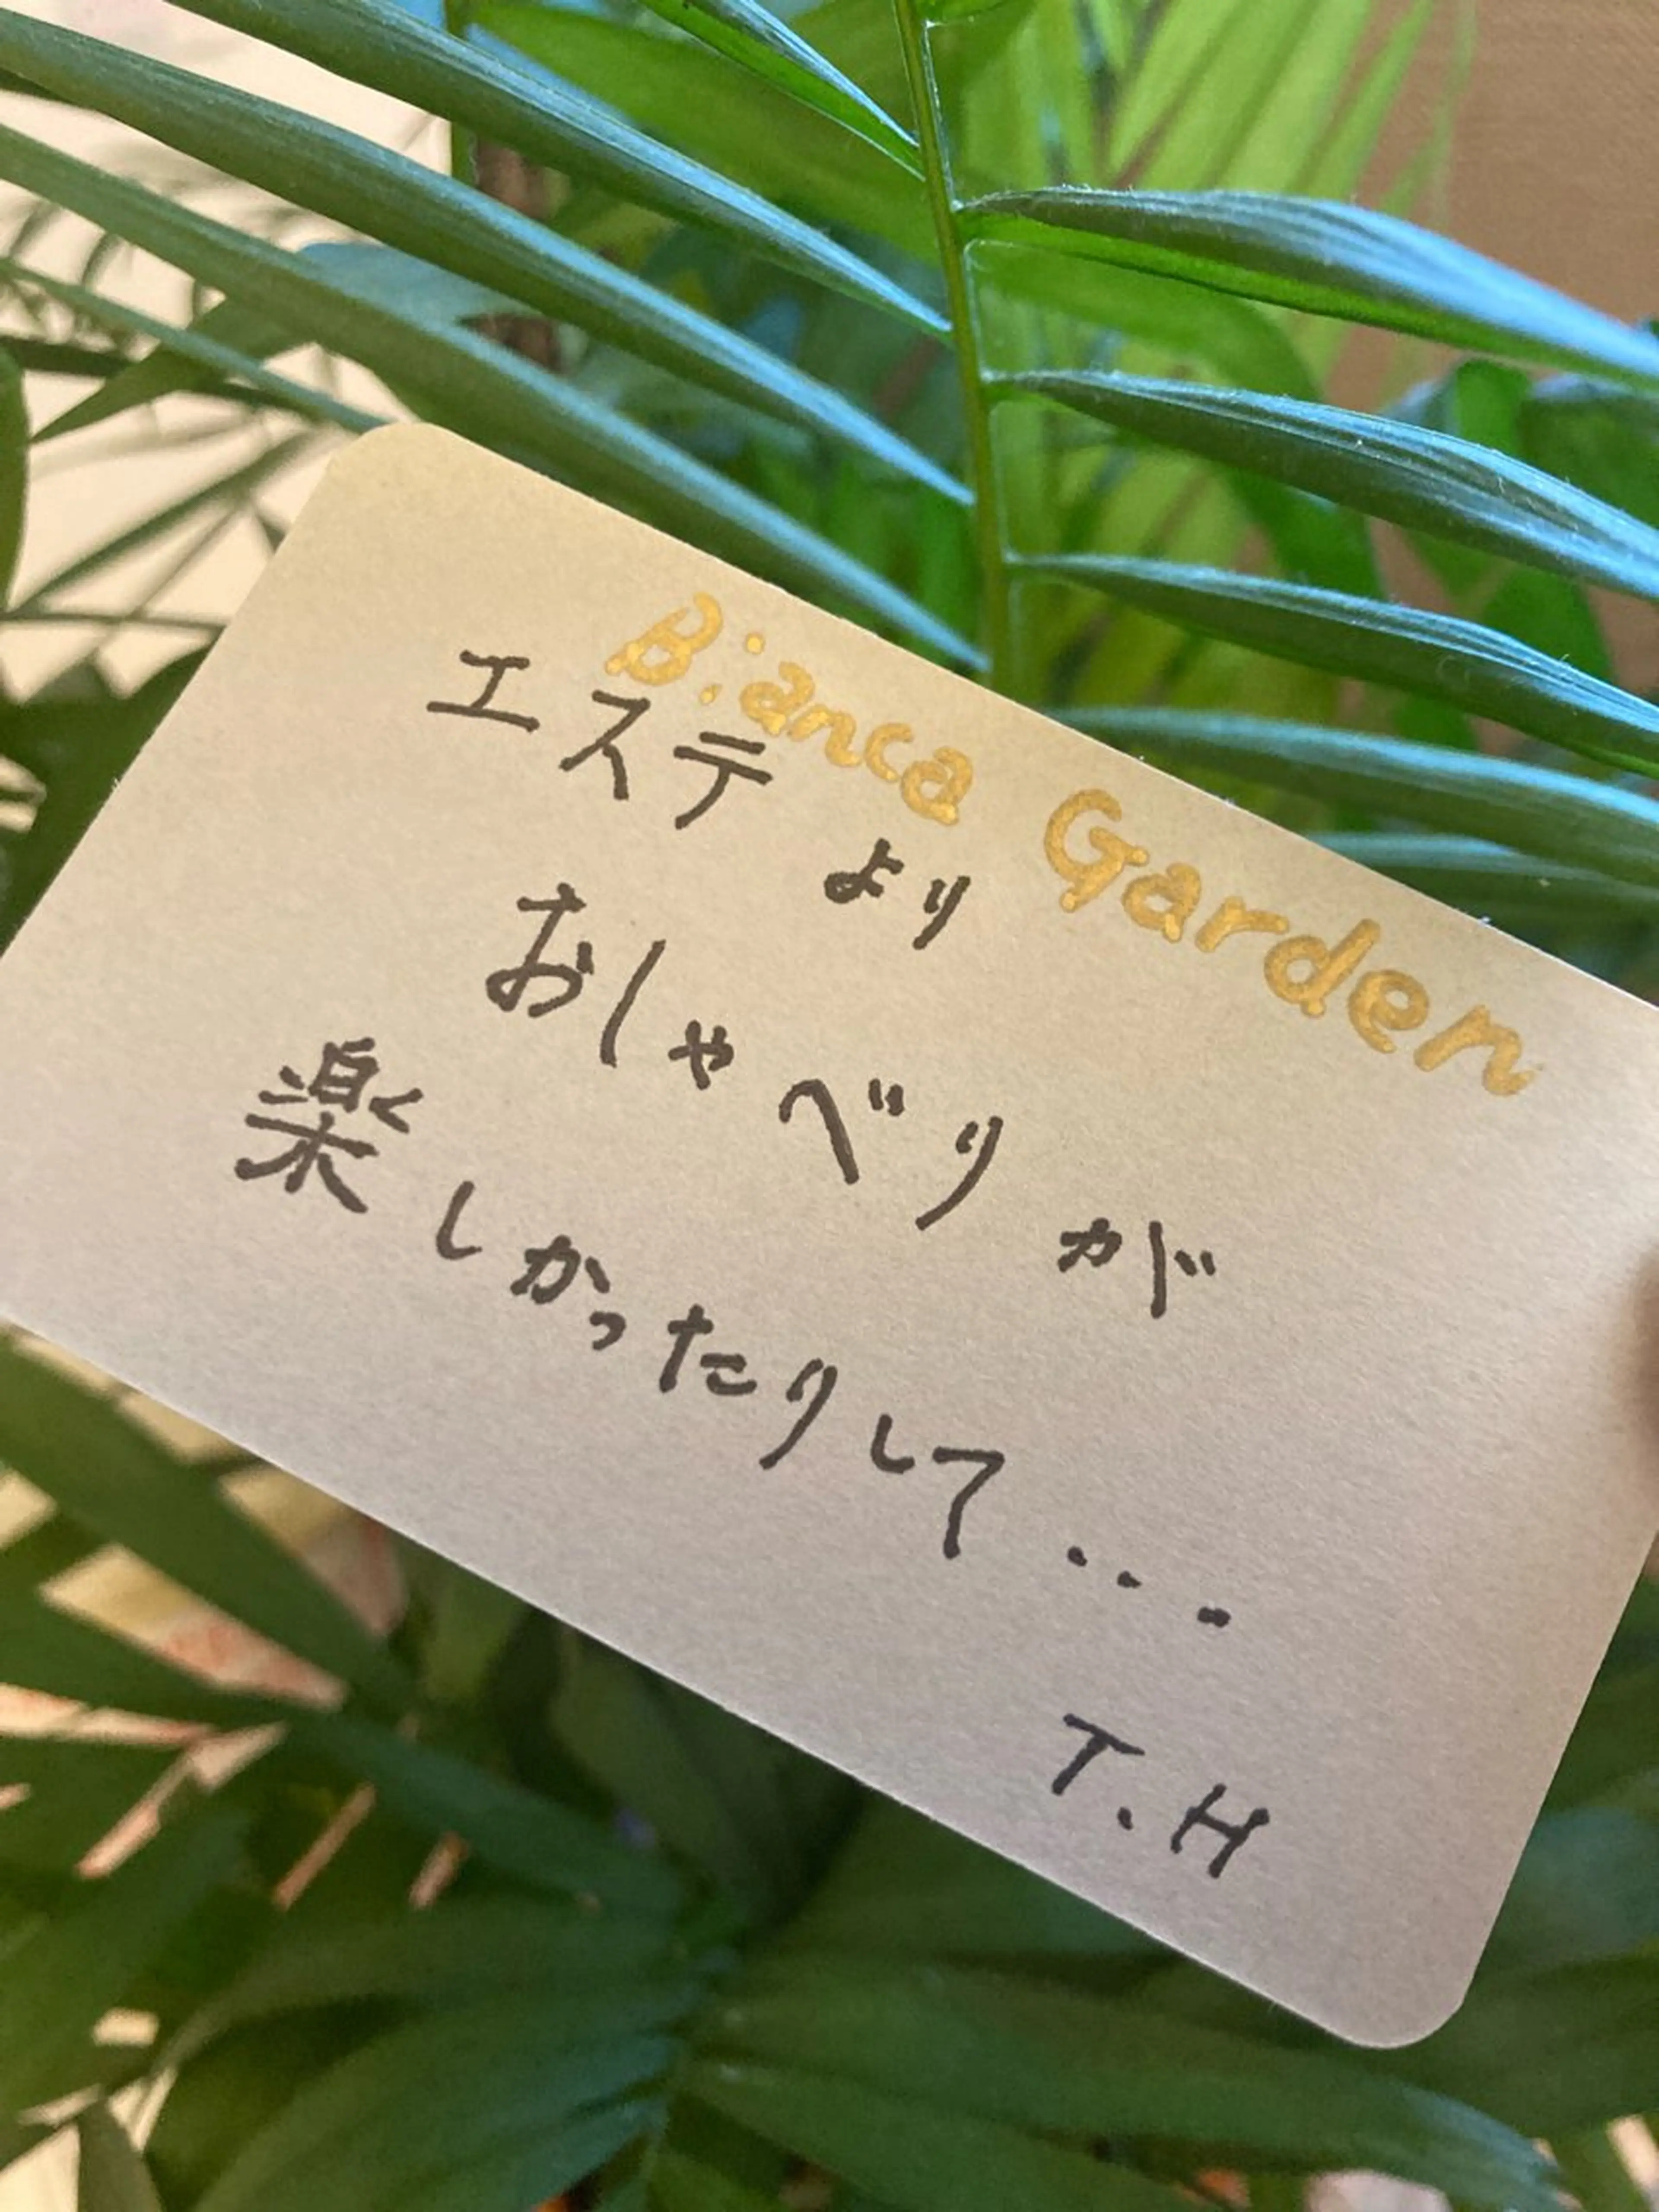 Bianca Garden
エステ より
おしゃべり が
楽しかったりして...
T.H